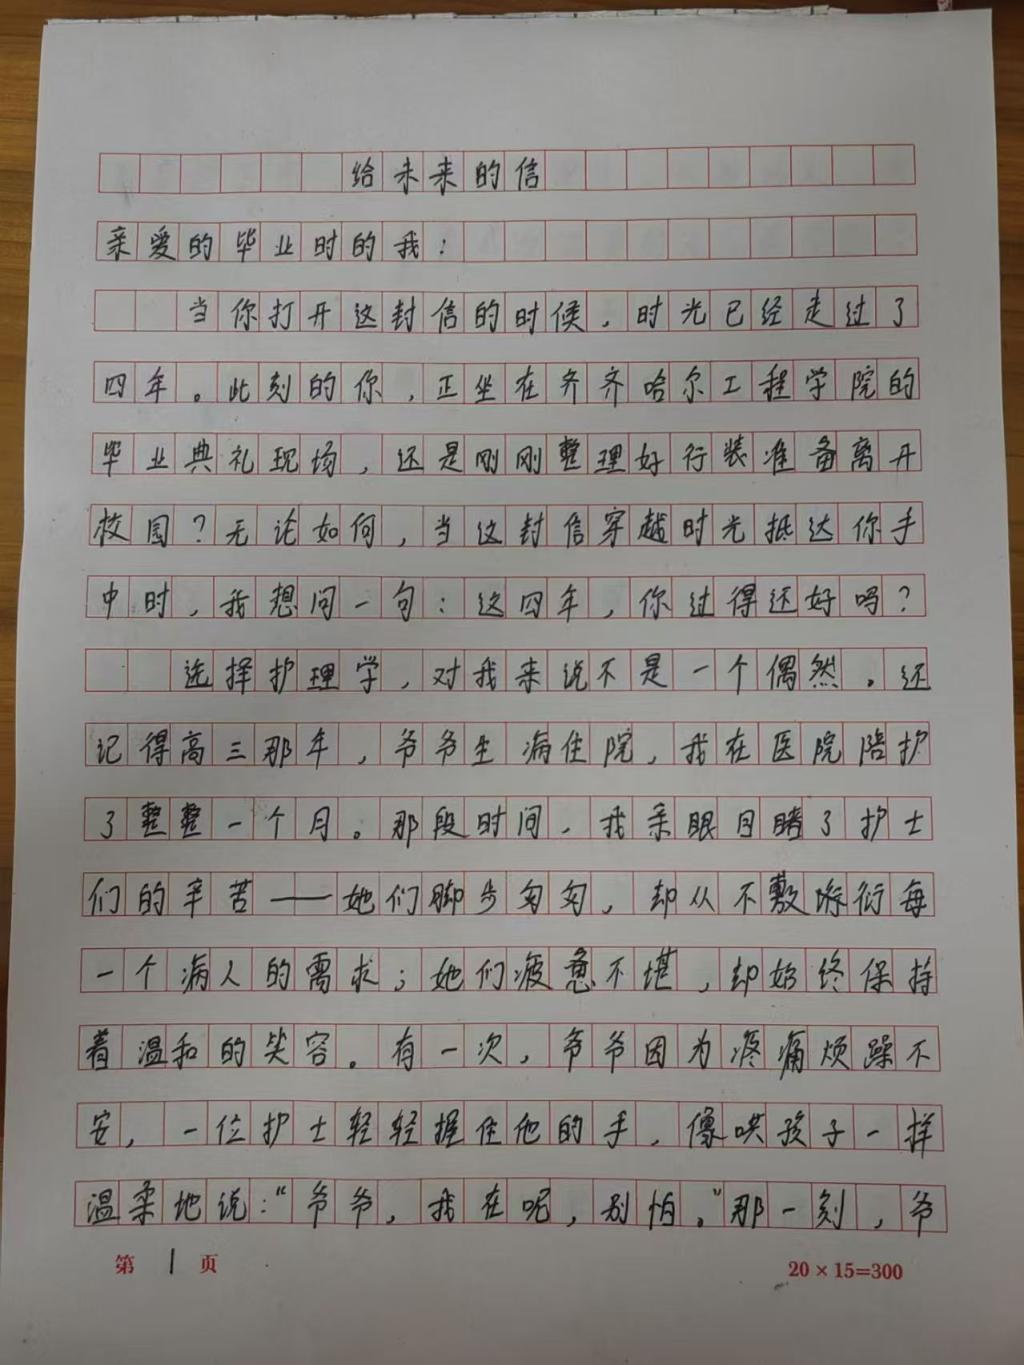 给未来的信
亲爱的毕业时的我：
当你打开这封信的时候，时光已经走过了
四年。此刻的你，正坐在齐齐哈尔工程学院的
毕业典礼现场，还是刚刚整理好行装准备离开
校园？无论如何，当这封信穿越时光抵达你手
中时，我想问一句：这四年，你过得还好吗？
选择护理学，对我来说不是一个偶然。还
记得高三那年，爷爷生病住院，我在医院陪护
了整整一个月。那段时间，我亲眼目睹了护士
们的辛苦——她们脚步匆匆，却从不敷衍每
一个病人的需求；她们疲惫不堪，却始终保持
着温和的笑容。有一次，爷爷因为疼痛烦躁不
安，一位护士轻轻握住他的手，像哄孩子一样
温柔地说：“爷爷，我在呢，别怕。”那一刻，爷
第1页
20×15=300